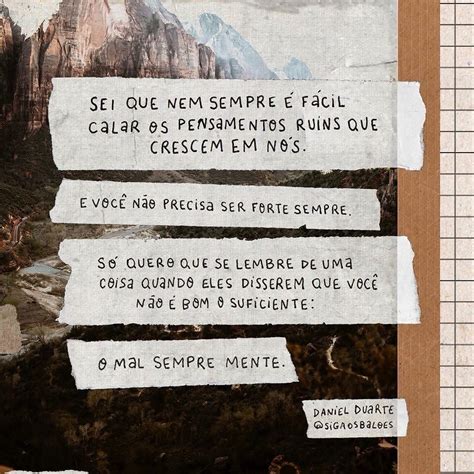 SEI QUE NEM SEMPRE É FÁCIL
CALAR OS PENSAMENTOS RUINS QUE
CRESCEM EM NÓS.
E VOCÊ NÃO PRECISA SER FORTE SEMPRE.
SÓ QUERO QUE SE LEMBRE DE UMA
COISA QUANDO ELES DISSEREM QUE VOCÊ
NÃO É BOM O SUFICIENTE:
O MAL SEMPRE MENTE.
DANIEL DUARTE
@SIGAOSBALOES